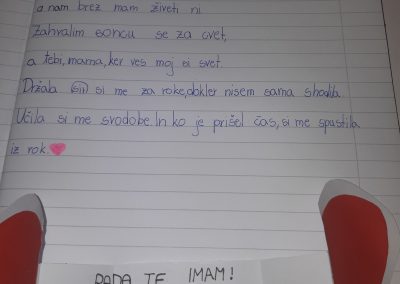 a nam brez mam živeti ni.
Zahvalim soncu se za cvet,
a tebi, mama, ker ves moj si svet.
Držala si me za roke, dokler nisem sama shodila.
Učila si me svobode. In ko je prišel čas, si me spustila
iz rok.
RADA TE IMAM!